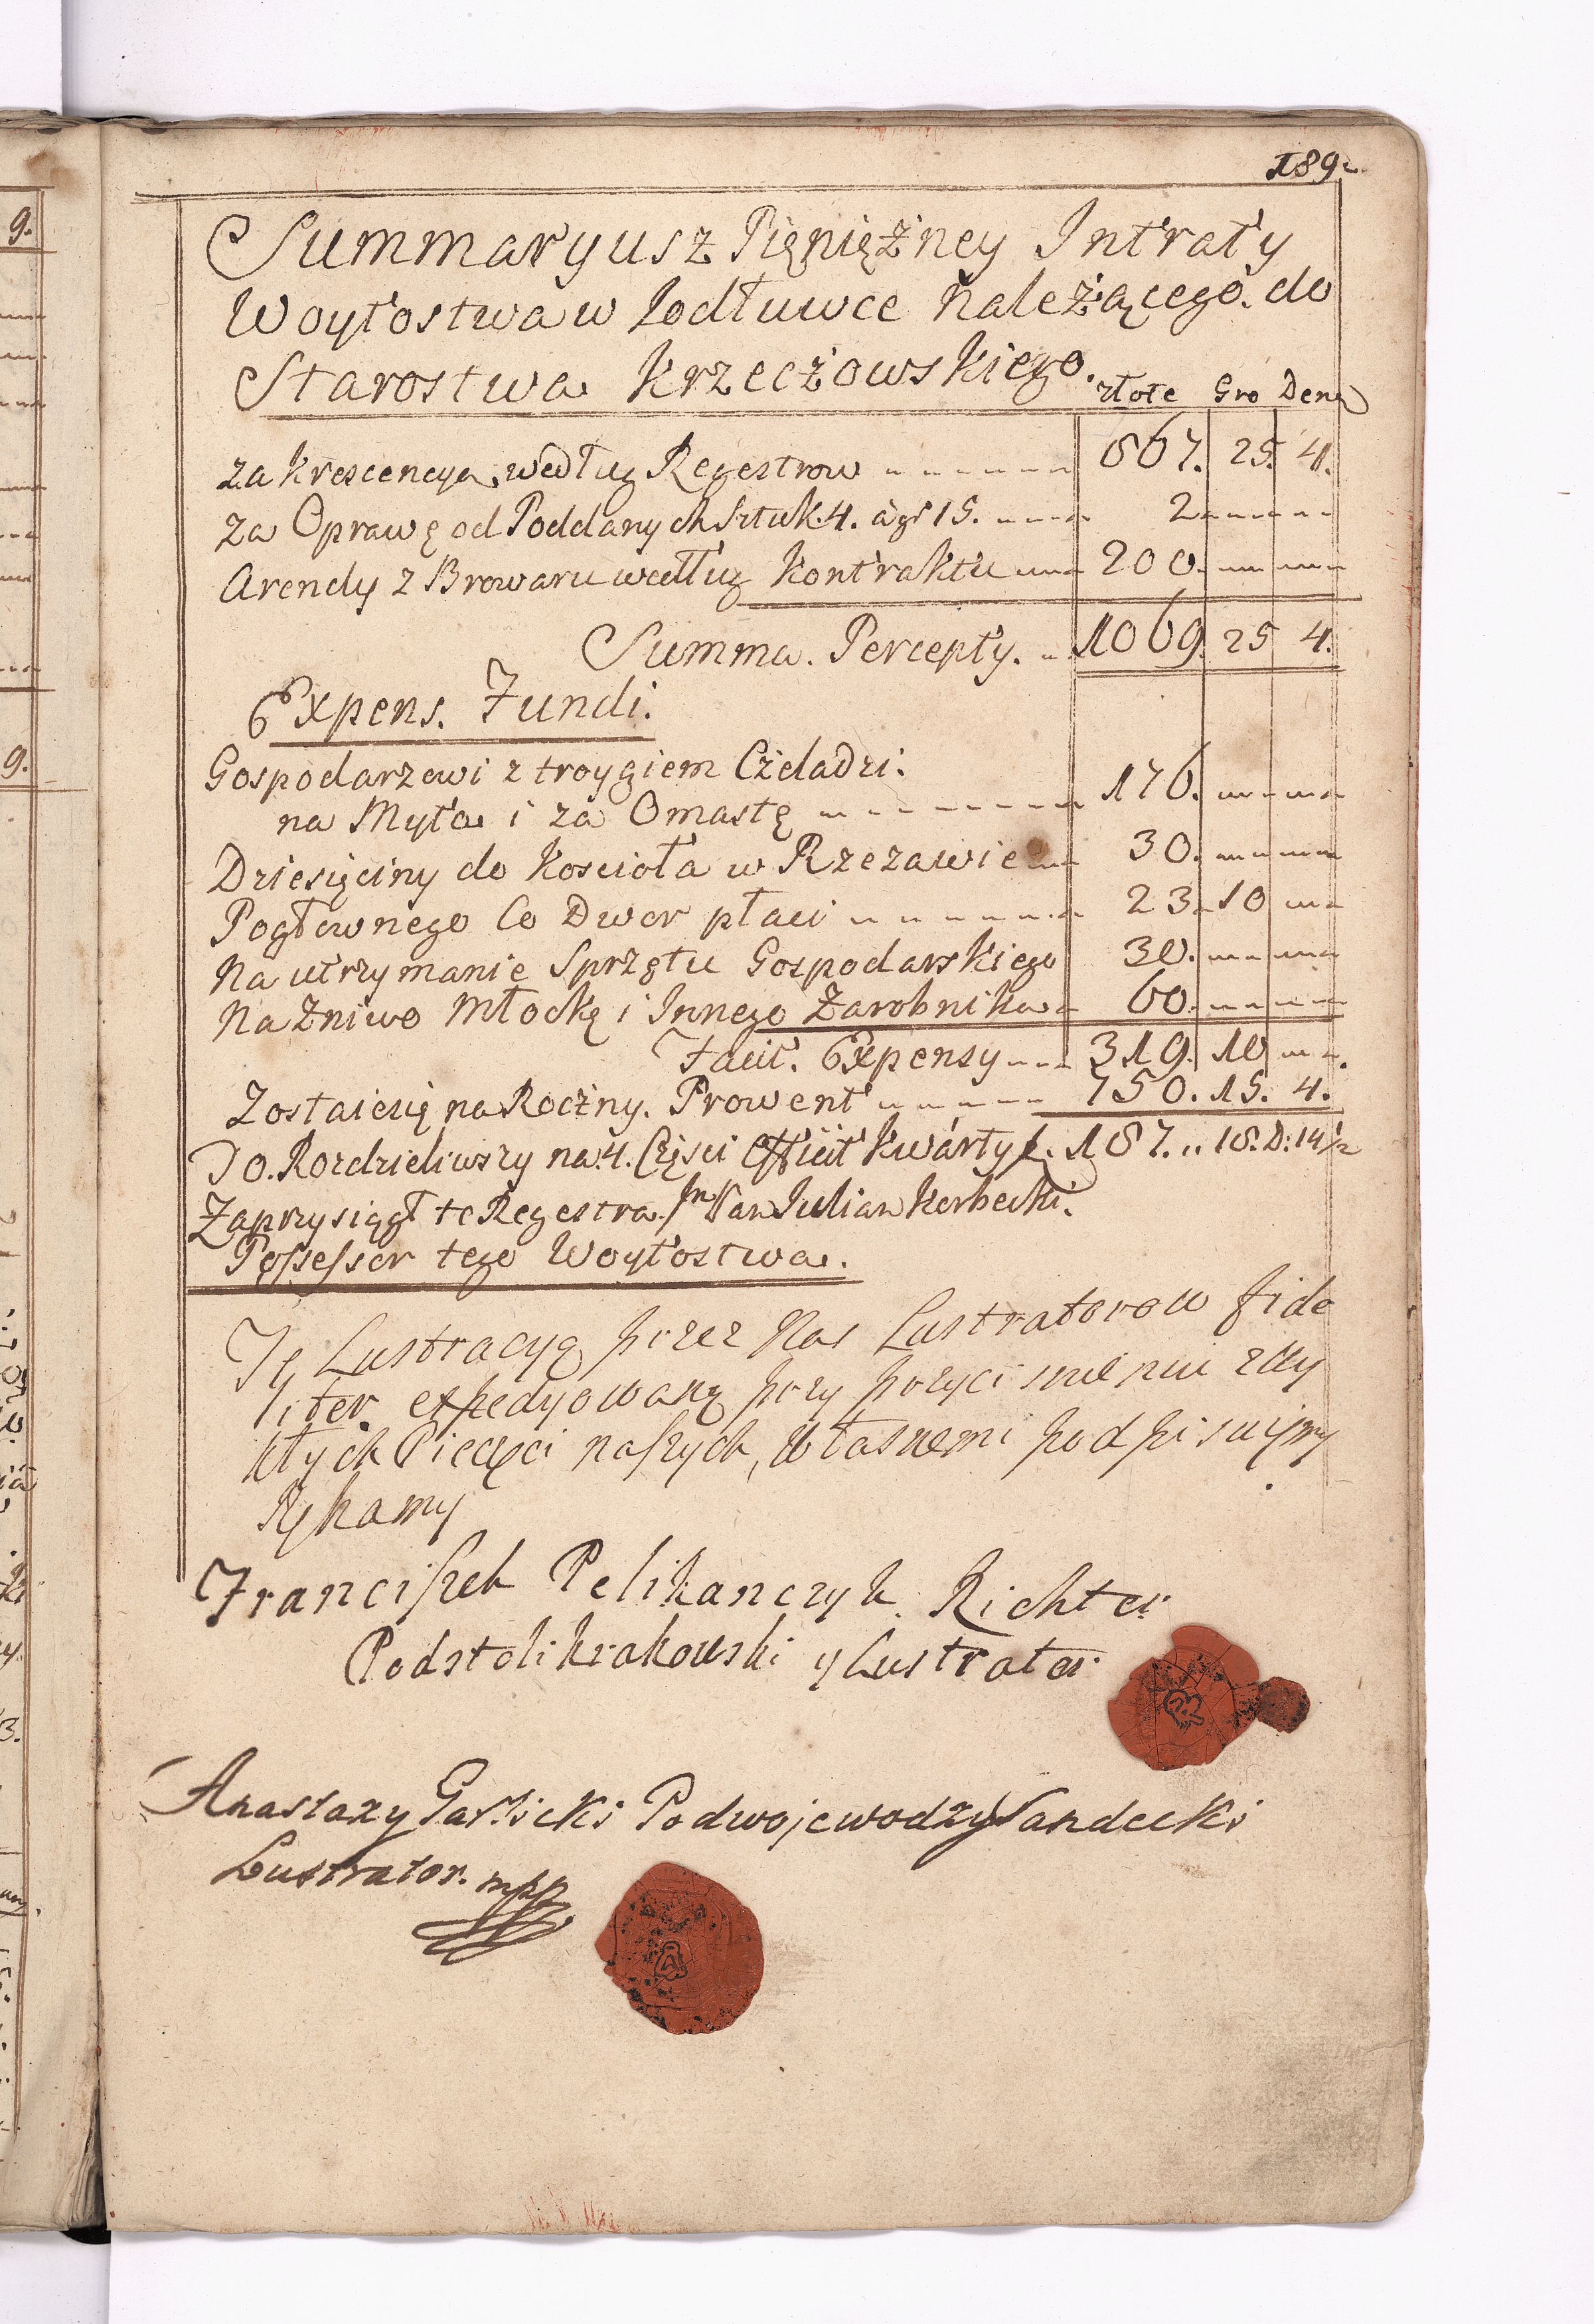 189.
Summaryusz Pięniężney Intraty
Woytostwa w Łodłuwce Należącego do
Starostwa Krzeczowskiego.
złote Gro Den
za Krescencya według Regestrow 867. 25. 4.
za Oprawę od Poddanych Sztuk. 4. a gr 15. 2
Arendy z Browaru według Kontraktu 200.
Summa. Percepty. 1069. 25 4.
Expens. Fundi.
Gospodarzowi z troygiem Czeladzi.
na Myta i za Omastę 176.
Dziesięciny do Kościoła w Rzezawie 30.
Pogłownego Co Dwor płaci 23. 10
Na utrzymanie Sprzętu Gospodarskiego 30.
Na Zniwo Młockę i Innego Zarobnika 60.
Facit. Expensy 319. 10
Zostaiesię na Roczny. Prowent 750. 15. 4.
To. Rozdzieliwszy na 4. Części Efficit Kwarty f. 187. 18. D: 14 1/2
Zaprzysiągł te Regestra Jan Julian Kerbecki.
Possessor tego Woytostwa.
Tę Lustracyą przez Nas Lustratorow fide
liter expedyowaną przy przyciśnieniu zwy
kłych Pieczęci naszych, własnemi podpisuiemy
Rękamy
Franciszek Pelikanczyk Richter
Podstoli Krakowski y Lustrator
Anastazy Garlicki Podwojewodzy Sandecki
Lustrator. mpp
9.
9.